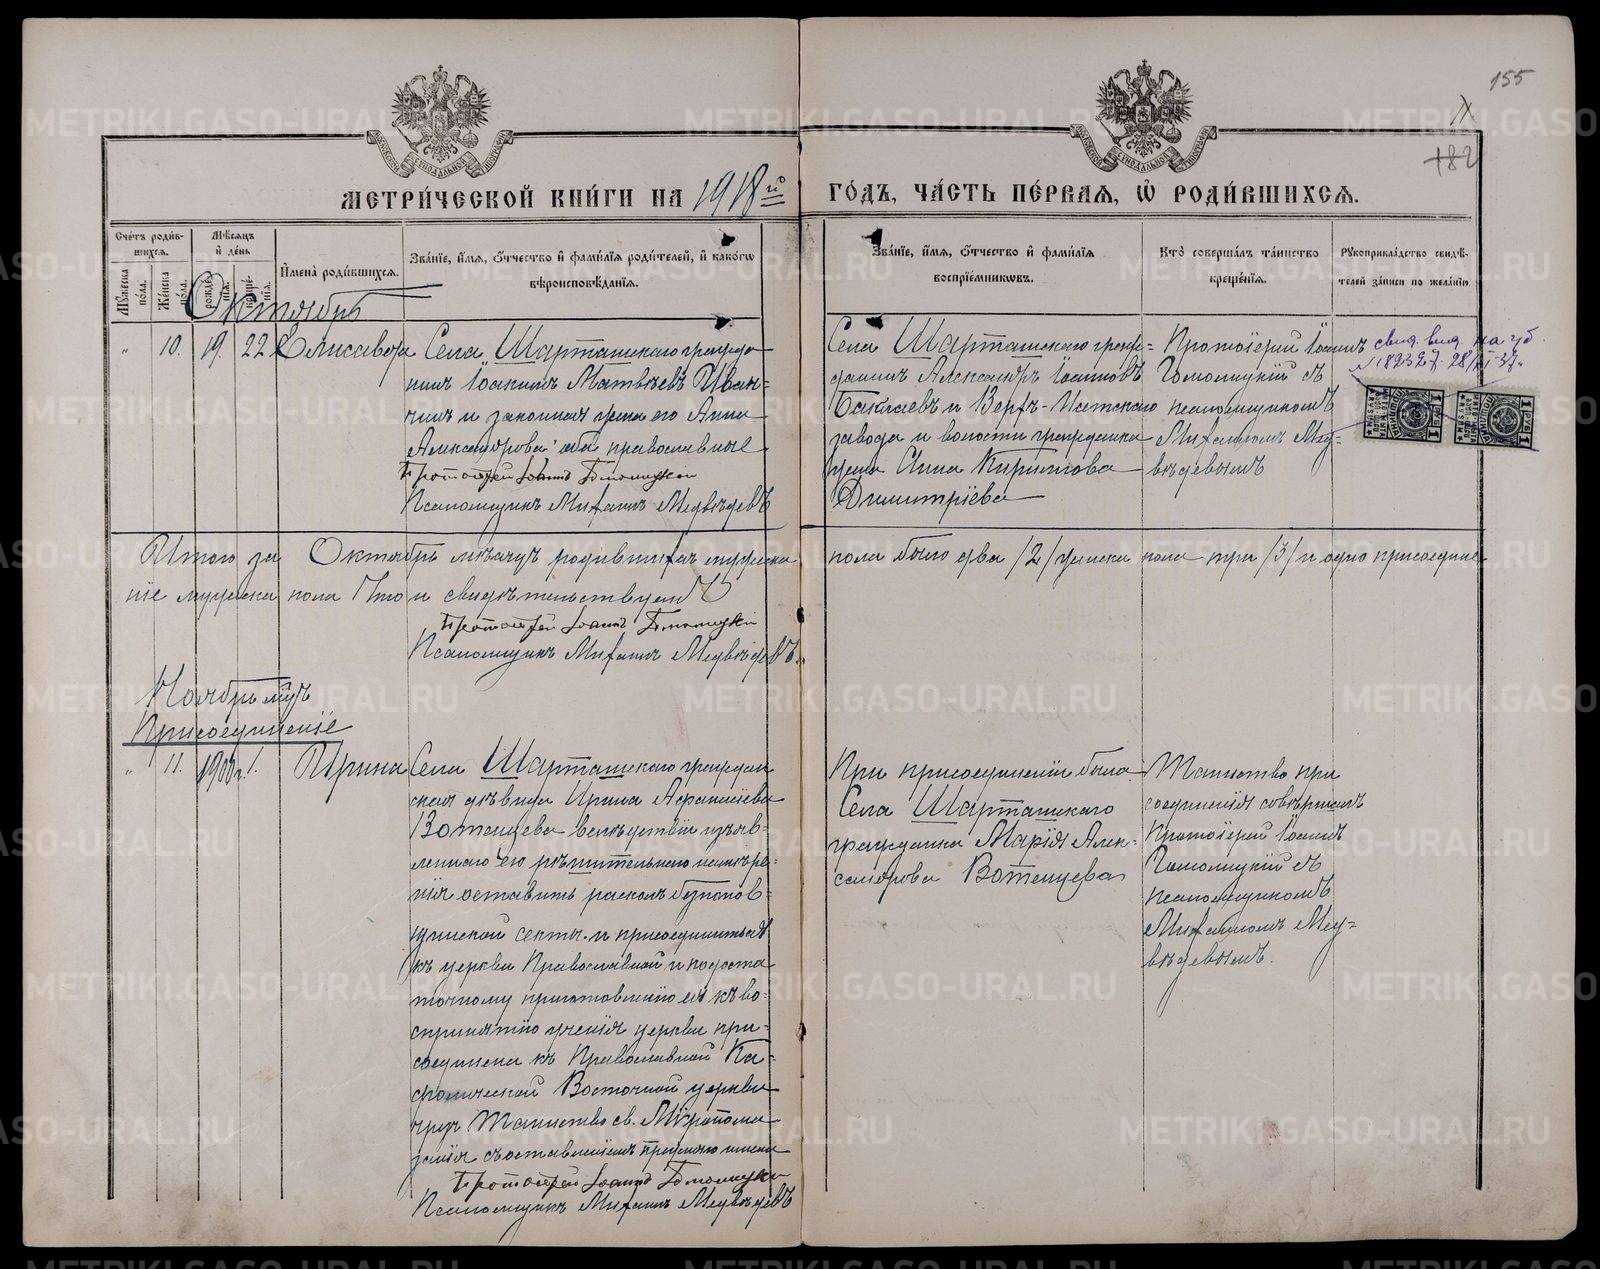 155
182
МЕТРИ́ЧЕСКОЙ КНИ́ГИ НА 1918й ГО́ДЪ, ЧА́СТЬ ПЕ́РВАЯ, Ѡ҆ РОДИ́ВШИХСЯ.
Сче́тъ роди́в-
шихся.
Мѣ́сяцъ
и҆ де́нь
И҆мена̀ роди́вшихся.
Зва́нїе, и҆́мя, ѻ҆́тчество и҆ фами́лїя роди́телей, и҆ како́гѡ
вѣроисповѣ́данїя.
Зва́нїе, и҆́мя, ѻ҆́тчество и҆ фами́лїя
воспрїе́мникѡвъ.
Кто̀ соверша́лъ та́инство
креще́нїя.
Рꙋкоприкла́дство свидѣ́-
телей за́писи по жела́нїю
Мꙋ́жеска по́ла.
Же́нска по́ла.
рожде́нїя.
креще́нїя.
Октябрь
" 10. 19. 22 Елисавета
Села Шарташскаго гражда-
нинъ Іоакимъ Матвѣевъ Иван-
чинъ и законная жена его Анна
Александрова оба православные
Протоіерей Іоаннъ Гомолицкій
Псаломщикъ Михаилъ Медвѣдевъ
Села Шарташскаго граж=
данинъ Александръ Іоанновъ
Баклаевъ и Верхъ-Исетскаго
завода и волости гражданка
жена Анна Кириллова
Димитріева
Протоіерей Іоаннъ
Гомолицкій съ
псаломщикомъ
Михаиломъ Мед=
вѣдевымъ
1 РУБ
1 РУБ
Итого за Октябрь мѣсяцъ родившихся мужска пола было два /2/ женска пола три /3/ и одно присоедине
ніе женска пола Что и свидѣтельствуемъ
Протоіерей Іоаннъ Гомолицкій
Псаломщикъ Михаилъ Медвѣдевъ.
Ноябрь мцъ
Присоединеніе
" 11. 1900г. 1. Ирина
Села Шарташскаго граждан
ская дѣвица Ирина Афанасіева
Вотенцева вслѣдствіи изъяв-
леннаго ею рѣшительнаго намѣре-
нія оставить расколъ безпопов-
щинской секты и присоединиться
къ церкви Православной и по доста
точному приготовленію ея къ во-
спринятію ученія церкви при-
соединена къ Православной Ка-
фолической Восточной церкви
чрезъ Таинство св. Мѵропома
занія съ оставленіемъ прежняго имени
Протоіерей Іоаннъ Гомолицкій
Псаломщикъ Михаилъ Медвѣдевъ
При присоединеніи была
Села Шарташскаго
гражданка Марія Алек-
сандрова Вотенцева
Таинство при
соединенія совѣршалъ
Протоіерей Іоаннъ
Гомолицкій съ
псаломщикомъ
Михаиломъ Мед=
вѣдевымъ.
METRIKI.GASO-URAL.RU